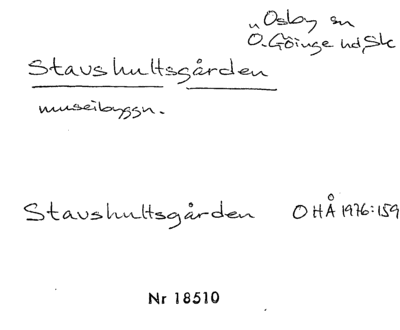 „ Osby sn
Ö. Göinge hd, Sk
Stavshultsgården
museibyggn.
Stavshultsgården OHÅ 1976:159
Nr 18510